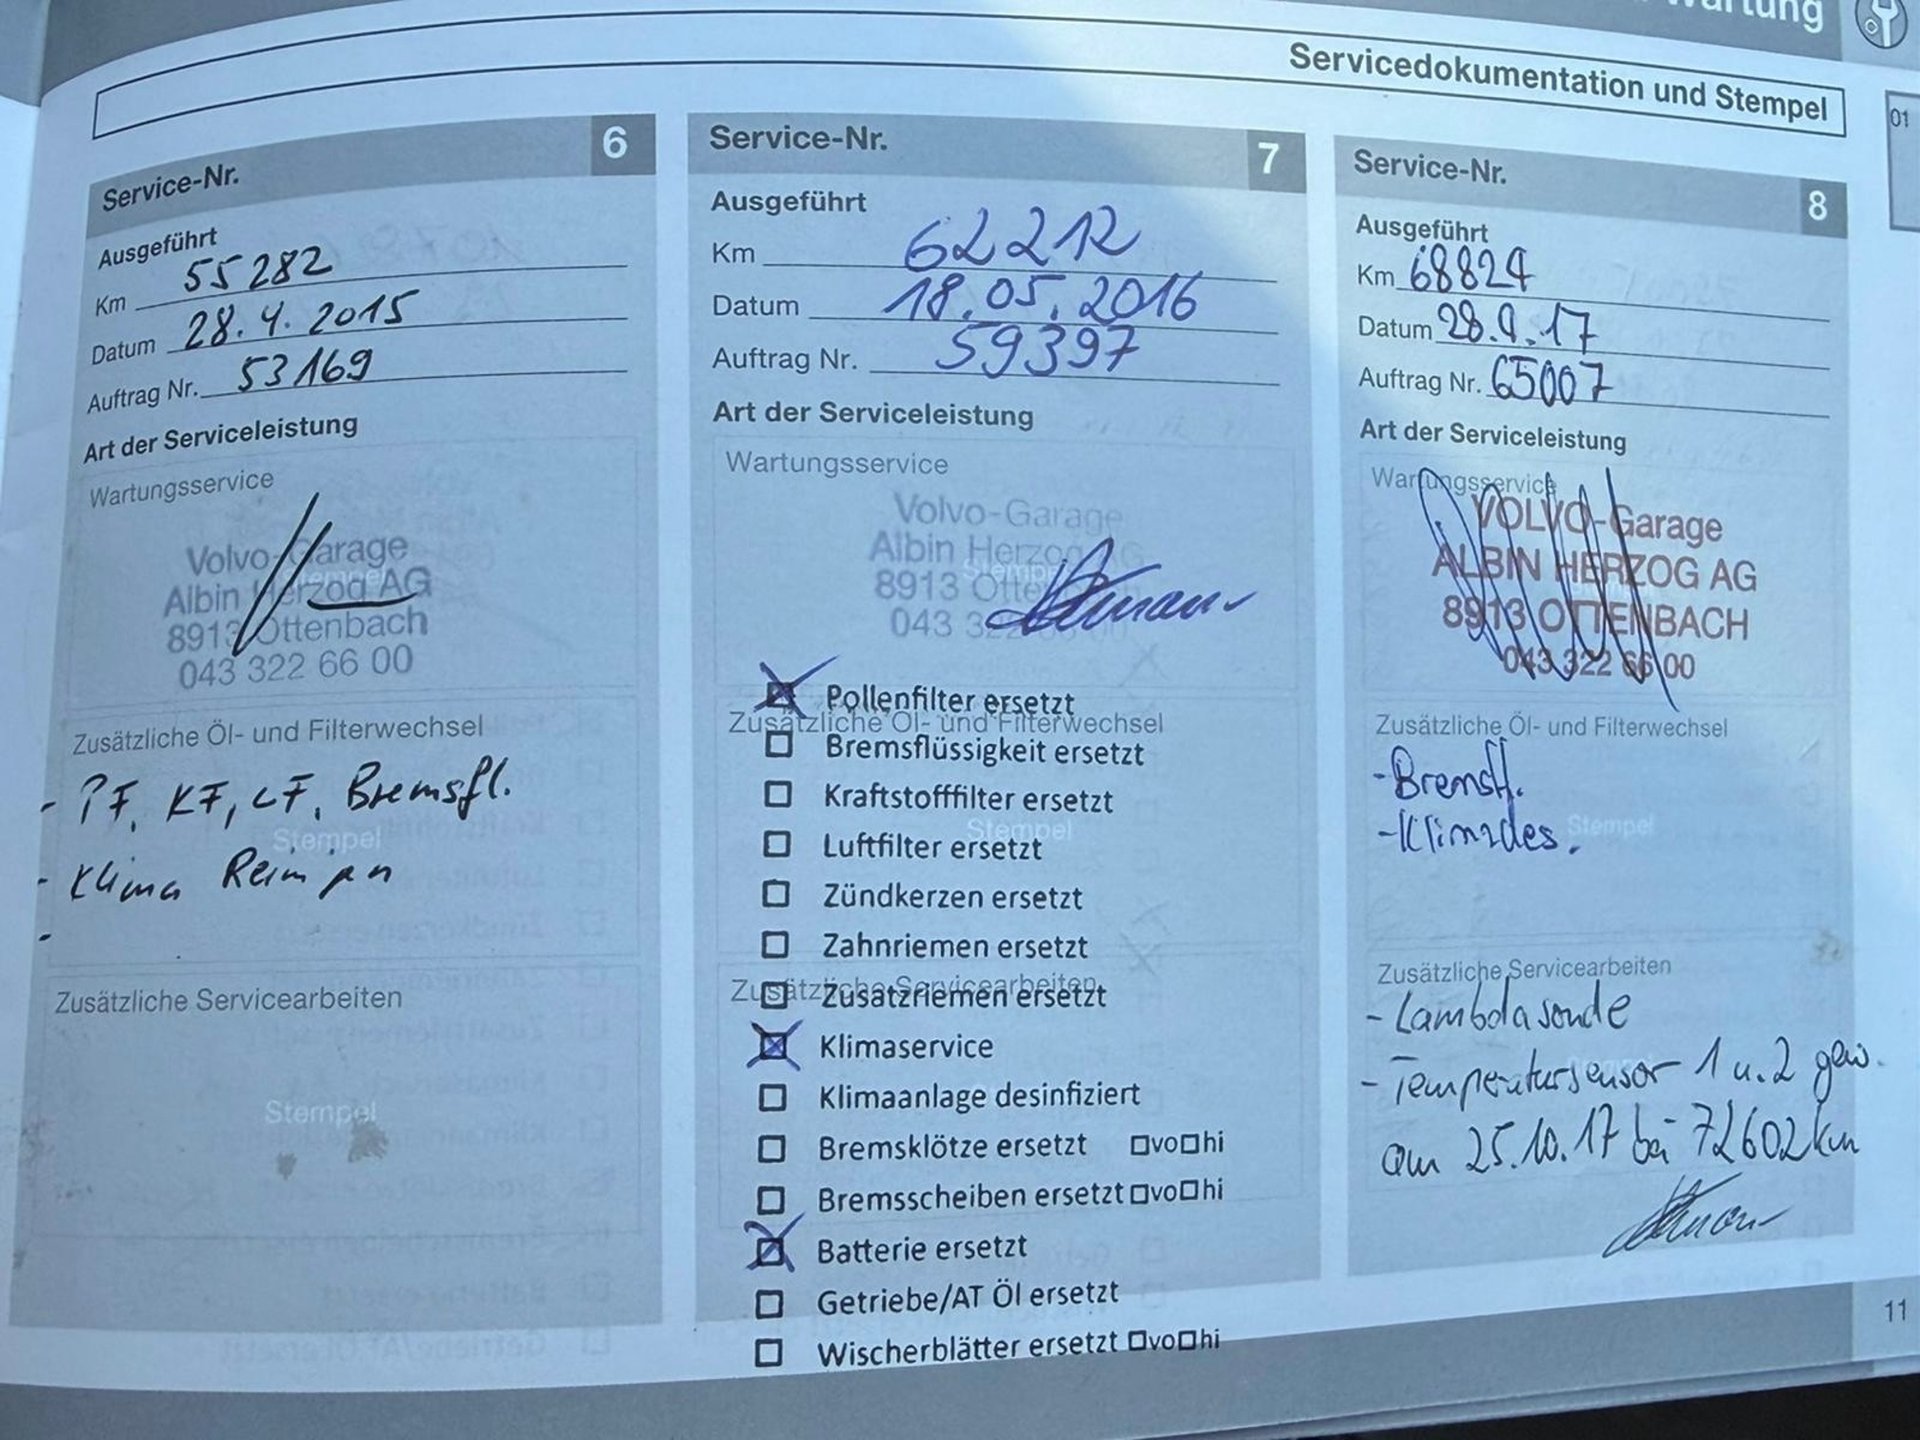 Wartung
Servicedokumentation und Stempel
01
Service-Nr. 6
Ausgeführt
Km 55282
Datum 28.4.2015
Auftrag Nr. 53169
Art der Serviceleistung
Wartungsservice
Volvo-Garage
Albin Herzog AG
8913 Ottenbach
043 322 66 00
Zusätzliche Öl- und Filterwechsel
- PF, KF, LF, Bremsfl.
Stempel
- Klima
-
Zusätzliche Servicearbeiten
Stempel
Service-Nr. 7
Ausgeführt
Km 62212
Datum 18.05.2016
Auftrag Nr. 59397
Art der Serviceleistung
Wartungsservice
Volvo-Garage
Albin Herzog AG
8913 Ottenbach
043 322 66 00
Pollenfilter ersetzt
Zusätzliche Öl- und Filterwechsel
Bremsflüssigkeit ersetzt
Kraftstofffilter ersetzt
Stempel
Luftfilter ersetzt
Zündkerzen ersetzt
Zahnriemen ersetzt
Zusätzliche Servicearbeiten
Zusatzriemen ersetzt
Klimaservice
Klimaanlage desinfiziert
Bremsklötze ersetzt vo hi
Bremsscheiben ersetzt vo hi
Batterie ersetzt
Getriebe/AT Öl ersetzt
Wischerblätter ersetzt vo hi
Service-Nr. 8
Ausgeführt
Km 68824
Datum 28.9.17
Auftrag Nr. 65007
Art der Serviceleistung
Wartungsservice
VOLVO-Garage
ALBIN HERZOG AG
8913 OTTENBACH
043 322 66 00
Zusätzliche Öl- und Filterwechsel
- Bremsfl.
- Klimades.
Stempel
Zusätzliche Servicearbeiten
- Lambdasonde
- Temperatursensor 1 u. 2 gew.
am 25.10.17 bei 72602 km
11